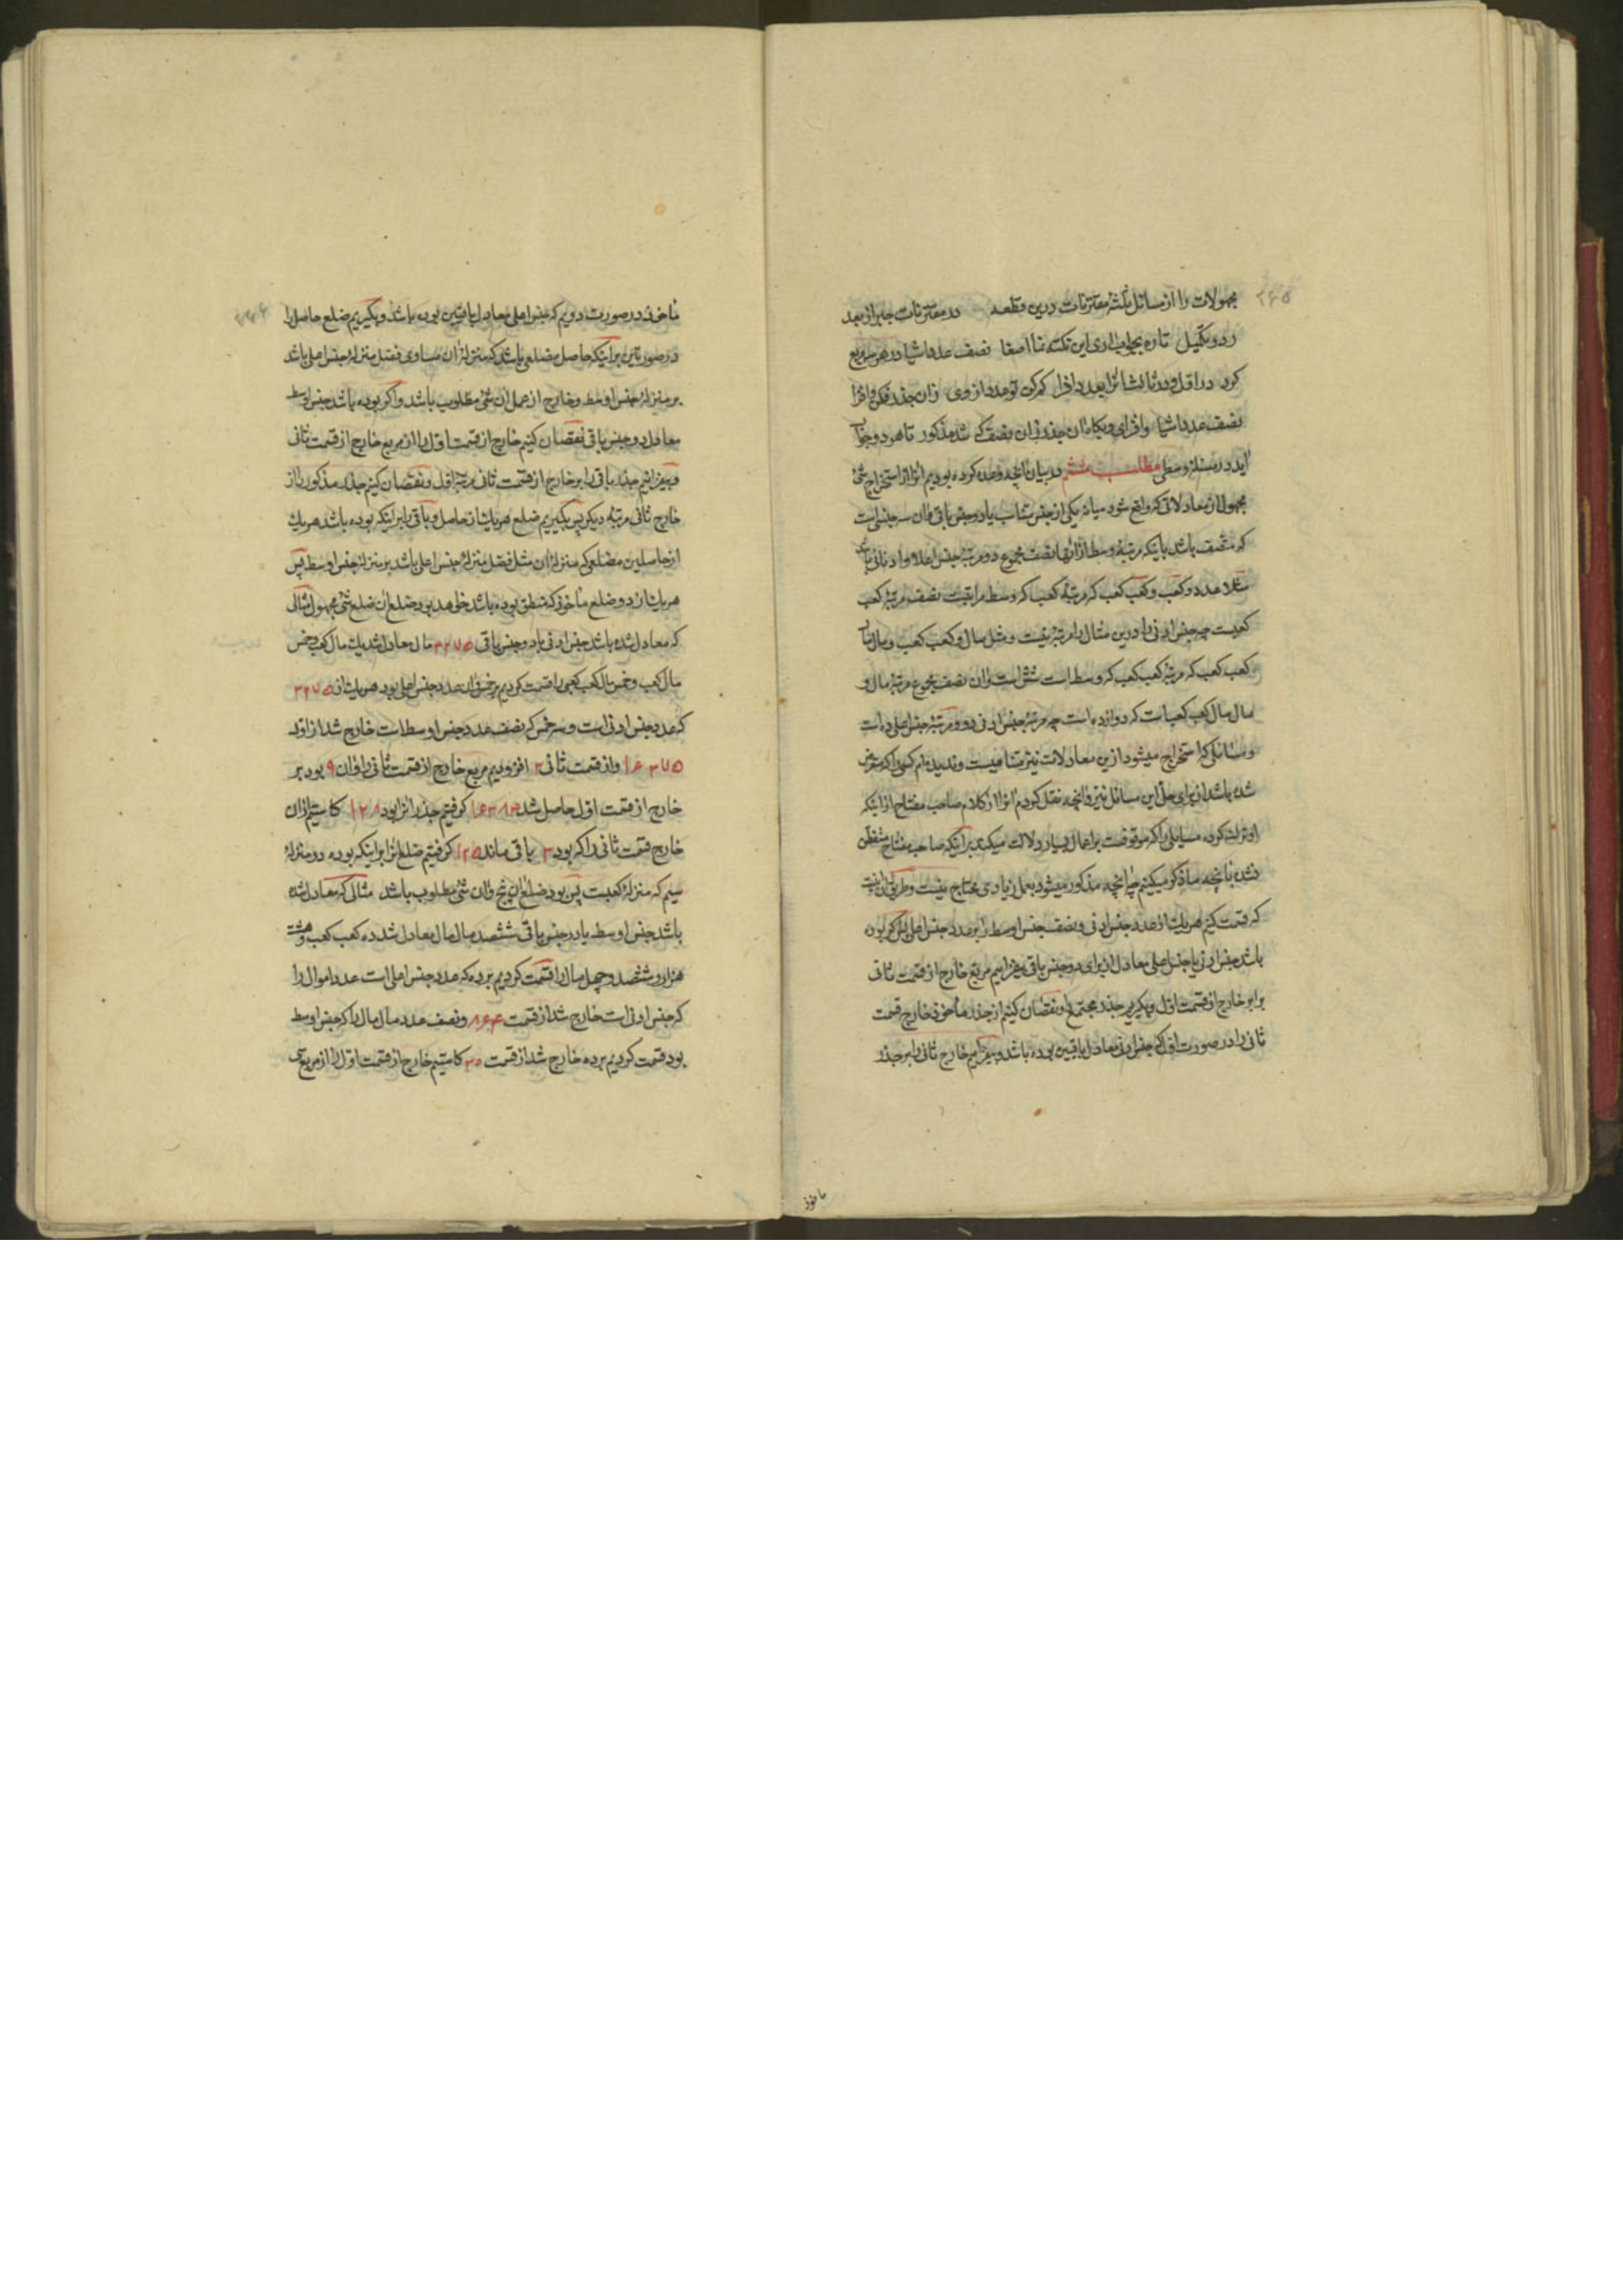 ۲۶۵
مجهولات را از مسائل ثلثهٔ مقترنات درین قطعه در مقترنات جبر از بعد
رد و تکمیل تا ره بجواب اری این نکته نما اصغا نصف عدد اشیا در هر سه مربع
کرد در اول و در ثالث انرا بعدد افزا کم کن تو عدد از وی زان جذر فکن و افزا
نصف عدد اشیا وافزای و بکاه ان جذر زان نصف که شد مذکور تا هر دو جواب
اید در مسئلهٔ وسطی مطلب ششم در بیان انچه وعده کرده بودیم انرا از استخراج شئ
مجهول از معادلاتی که واقع شود میانهٔ یکی از جنس متناسب با دو جنس باقی و ان سه جنسی است
که منصف باشد باینکه مرتبهٔ وسط از انها نصف مجموع دو مرتبهٔ جنس اعلا و ادنای باشد
مثلا عدد و کعب و کعب کعب که مرتبهٔ کعب که وسط مراتبست نصف مرتبهٔ کعب
کعبست چه جنس ادنی را درین مثال مرتبه نیست و مثل مال و کعب کعب و مال مال
کعب کعب که مرتبهٔ کعب کعب که وسط است شش است وان نصف مجموع مرتبهٔ مال و
مال مال کعب کعبست که دوازده است چه مرتبهٔ جنس ادنی دو و مرتبهٔ جنس اعلی ده است
و مسائلی که استخراج میشود ازین معادلات نیز متناهیست و ندیده‌ام کسی را که متعرض
شده باشد از برای حل این مسائل نیز و انچه نقل کردم انرا از کلام صاحب مفتاح از اینکه
او ترک کرده مسایلی را که موقوفست بر اعمال بسیار دلالت میکند بر اینکه صاحب مفتاح متفطن
نشده بانچه ما ذکر میکنیم چه انچه مذکور میشود بعمل زیادی محتاج نیست و طریق ان اینست
که قسمت کنیم هر یک از عدد جنس ادنی و نصف جنس اوسط را بر عدد جنس اعلی پس اگر بوده
باشد جنس ادنی یا جنس اعلی معادل از برای دو جنس باقی بیفزاییم مربع خارج از قسمت ثانی
برابر خارج از قسمت اول و بگیریم جذر مجتمع را و نقصان کنیم از جذر ماخوذ خارج قسمت
ثانی را در صورت اول که جنس ادنی معادل باقیین بوده باشد و بیفزاییم خارج ثانی را بر جذر
ماخوذ
ماخوذ در صورت دویم که جنس اعلی معادل باقیین بوده باشد و بگیریم ضلع حاصل را
در صورتین بر اینکه حاصل مضلعی باشد که منزلهٔ ان مساوی فضل منزلهٔ جنس اعلی باشد
بر منزلهٔ جنس اوسط و خارج از عمل ان شئ مطلوب باشد و اگر بوده باشد جنس اوسط
معادل دو جنس باقی نقصان کنیم خارج از قسمت اول را از مربع خارج از قسمت ثانی
و بیفزائیم جذر باقی را بر خارج از قسمت ثانی مرتبهٔ اول و نقصان کنیم جذر مذکور را از
خارج ثانی مرتبهٔ دیگر پس بگیریم ضلع هر یک از حاصل و باقی را بر اینکه بوده باشد هر یک
از حاصلین مضلعی که منزلهٔ ان مثل فضل منزلهٔ جنس اعلی باشد بر منزلهٔ جنس اوسط پس
هر یک از دو ضلع ماخوذ که منطق بوده باشد خواهد بود ضلع ان ضلع شئ مجهول مثالی
که معادل شده باشد جنس ادنی با دو جنس باقی ۳۲۷۵ مال معادل شد یک مال کعب و خمس
مال کعب و خمس مال کعب کعبی را قسمت کردیم بر خمس وان عدد جنس اعلی بود هر یک از ۳۲۷۵
که عدد جنس ادنی است و سه خمس که نصف عدد جنس اوسط است خارج شد از اول
۱۶۳۷۵ و از قسمت ثانی ۳ افزودیم مربع خارج از قسمت ثانی را وان ۹ بود بر
خارج از قسمت اول حاصل شد ۱۶۳۸۴ گرفتیم جذر انرا بود ۱۲۸ کاستیم ازان
خارج قسمت ثانی را که بود ۳ باقی ماند ۱۲۵ گرفتیم ضلع انرا بر اینکه بوده در منزلهٔ
سیم که منزلهٔ کعبست پس بود ضلع ان پنج وان شئ مطلوب باشد مثالی که معادل شده
باشد جنس اوسط با دو جنس باقی ششصد مال مال معادل شد ده کعب کعب و هشت
هزار و ششصد و چهل مال را قسمت کردیم بر ده که عدد جنس اعلی است عدد اموال را
که جنس ادنی است خارج شد از قسمت ۸۶۴ و نصف عدد مال مال را که جنس اوسط
بود قسمت کردیم بر ده خارج شد از قسمت ۳۰ کاستیم خارج از قسمت اول را از مربع سی